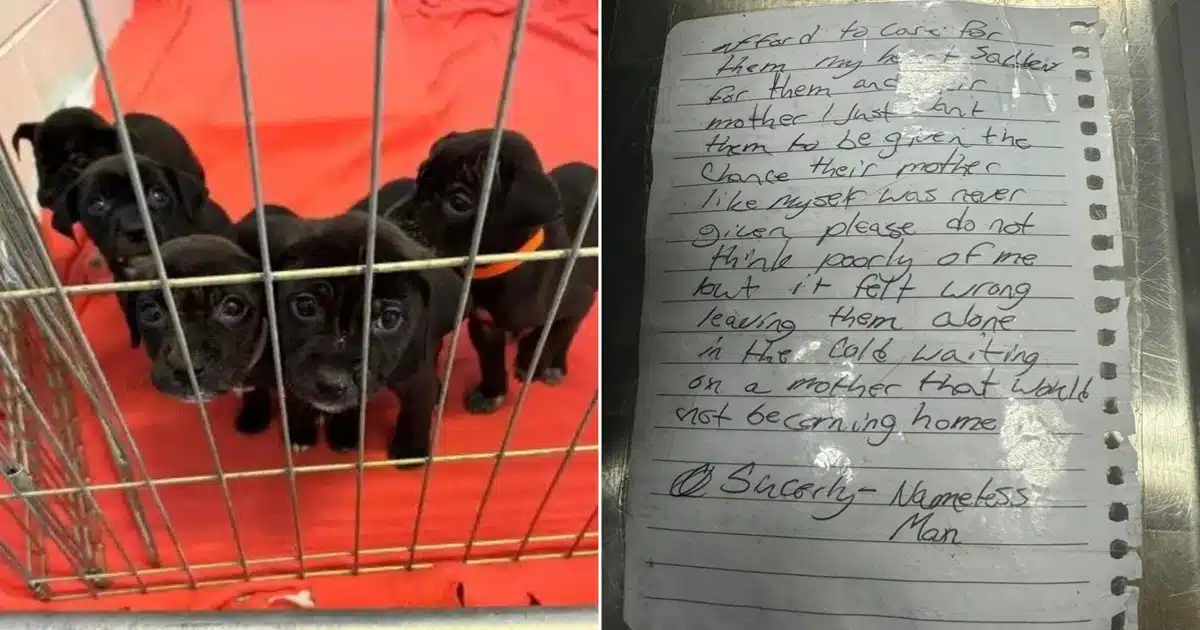 afford to care for
them my sadden
for them and
mother I Just
them to be given the
chance their mother
like myself was never
given please do not
think poorly of me
but it felt wrong
leaving them alone
in the cold waiting
on a mother that would
not be coming home
Sincerly - Nameless
Man